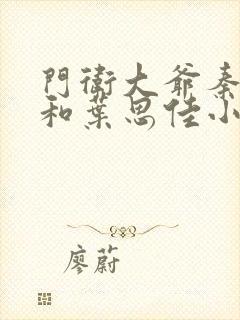 門衛大爺秦
和葉思佳小
廖蔚